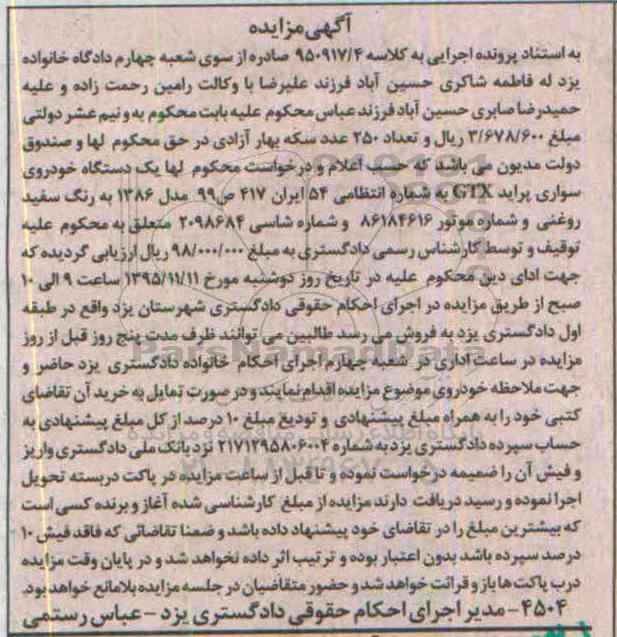 آگهی مزایده
به استناد پرونده اجرایی به کلاسه ۹۵۰۹۱۷/۴ صادره از سوی شعبه چهارم دادگاه خانواده
یزد له فاطمه شاکری حسین آباد فرزند علیرضا با وکالت رامین رحمت زاده و علیه
حمیدرضا صابری حسین آباد فرزند عباس محکوم علیه بابت محکوم به و نیم عشر دولتی
مبلغ ۳/۶۷۸/۶۰۰ ریال و تعداد ۲۵۰ عدد سکه بهار آزادی در حق محکوم لها و صندوق
دولت مدیون می باشد که حسب اعلام و درخواست محکوم لها یک دستگاه خودروی
سواری پراید GTX به شماره انتظامی ۵۴ ایران ۴۱۷ ص۹۹ مدل ۱۳۸۶ به رنگ سفید
روغنی و شماره موتور ۸۶۱۸۴۶۱۶ و شماره شاسی ۲۰۹۸۶۸۴ متعلق به محکوم علیه
توقیف و توسط کارشناس رسمی دادگستری به مبلغ ۹۸/۰۰۰/۰۰۰ ریال ارزیابی گردیده که
جهت ادای دین محکوم علیه در تاریخ روز دوشنبه مورخ ۱۳۹۵/۱۱/۱۱ ساعت ۹ الی ۱۰
صبح از طریق مزایده در اجرای احکام حقوقی دادگستری شهرستان یزد واقع در طبقه
اول دادگستری یزد به فروش می رسد طالبین می توانند ظرف مدت پنج روز قبل از روز
مزایده در ساعت اداری در شعبه چهارم اجرای احکام خانواده دادگستری یزد حاضر و
جهت ملاحظه خودروی موضوع مزایده اقدام نمایند و در صورت تمایل به خرید آن تقاضای
کتبی خود را به همراه مبلغ پیشنهادی و تودیع مبلغ ۱۰ درصد از کل مبلغ پیشنهادی به
حساب سپرده دادگستری یزد به شماره ۲۱۷۱۲۹۵۸۰۶۰۰۴ نزد بانک ملی دادگستری واریز
و فیش آن را ضمیمه درخواست نموده و تا قبل از ساعت مزایده در پاکت دربسته تحویل
اجرا نموده و رسید دریافت دارند مزایده از مبلغ کارشناسی شده آغاز و برنده کسی است
که بیشترین مبلغ را در تقاضای خود پیشنهاد داده باشد و ضمنا تقاضائی که فاقد فیش ۱۰
درصد سپرده باشد بدون اعتبار بوده و ترتیب اثر داده نخواهد شد و در پایان وقت مزایده
درب پاکت ها باز و قرائت خواهد شد و حضور متقاضیان در جلسه مزایده بلامانع خواهد بود.
۴۵۰۴- مدیر اجرای احکام حقوقی دادگستری یزد - عباس رستمی